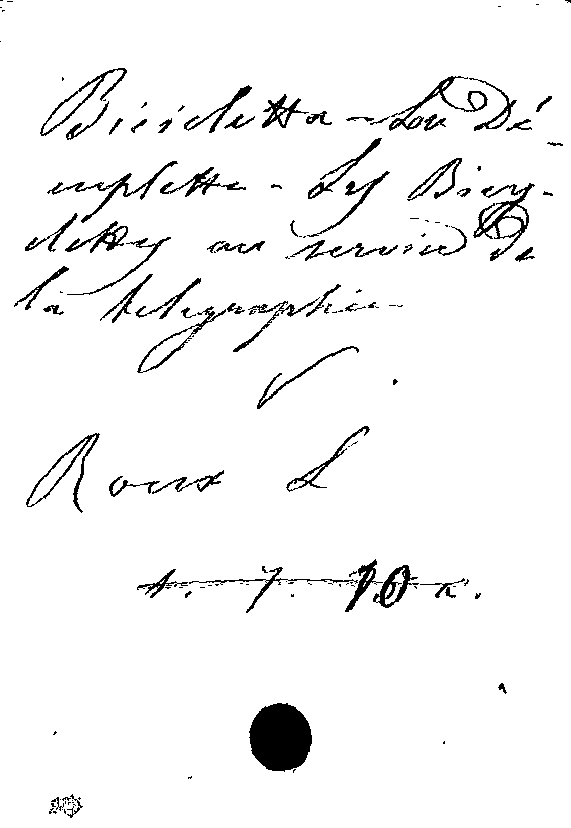 Bicicletta - Lou Dé-
euplette - Les Bicy-
clettes au service de
la telegraphie
Roux L
t. 7. 10 a.